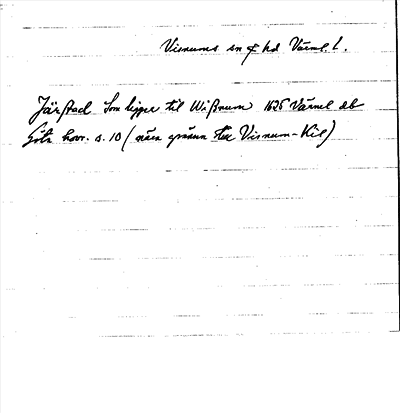 Visnums sn o hd Värml. l.
Järstad som ligger til Wißnum 1626 Värml äb
Göta hovr. s. 10 (nära gränsen till Visnum-Kil)